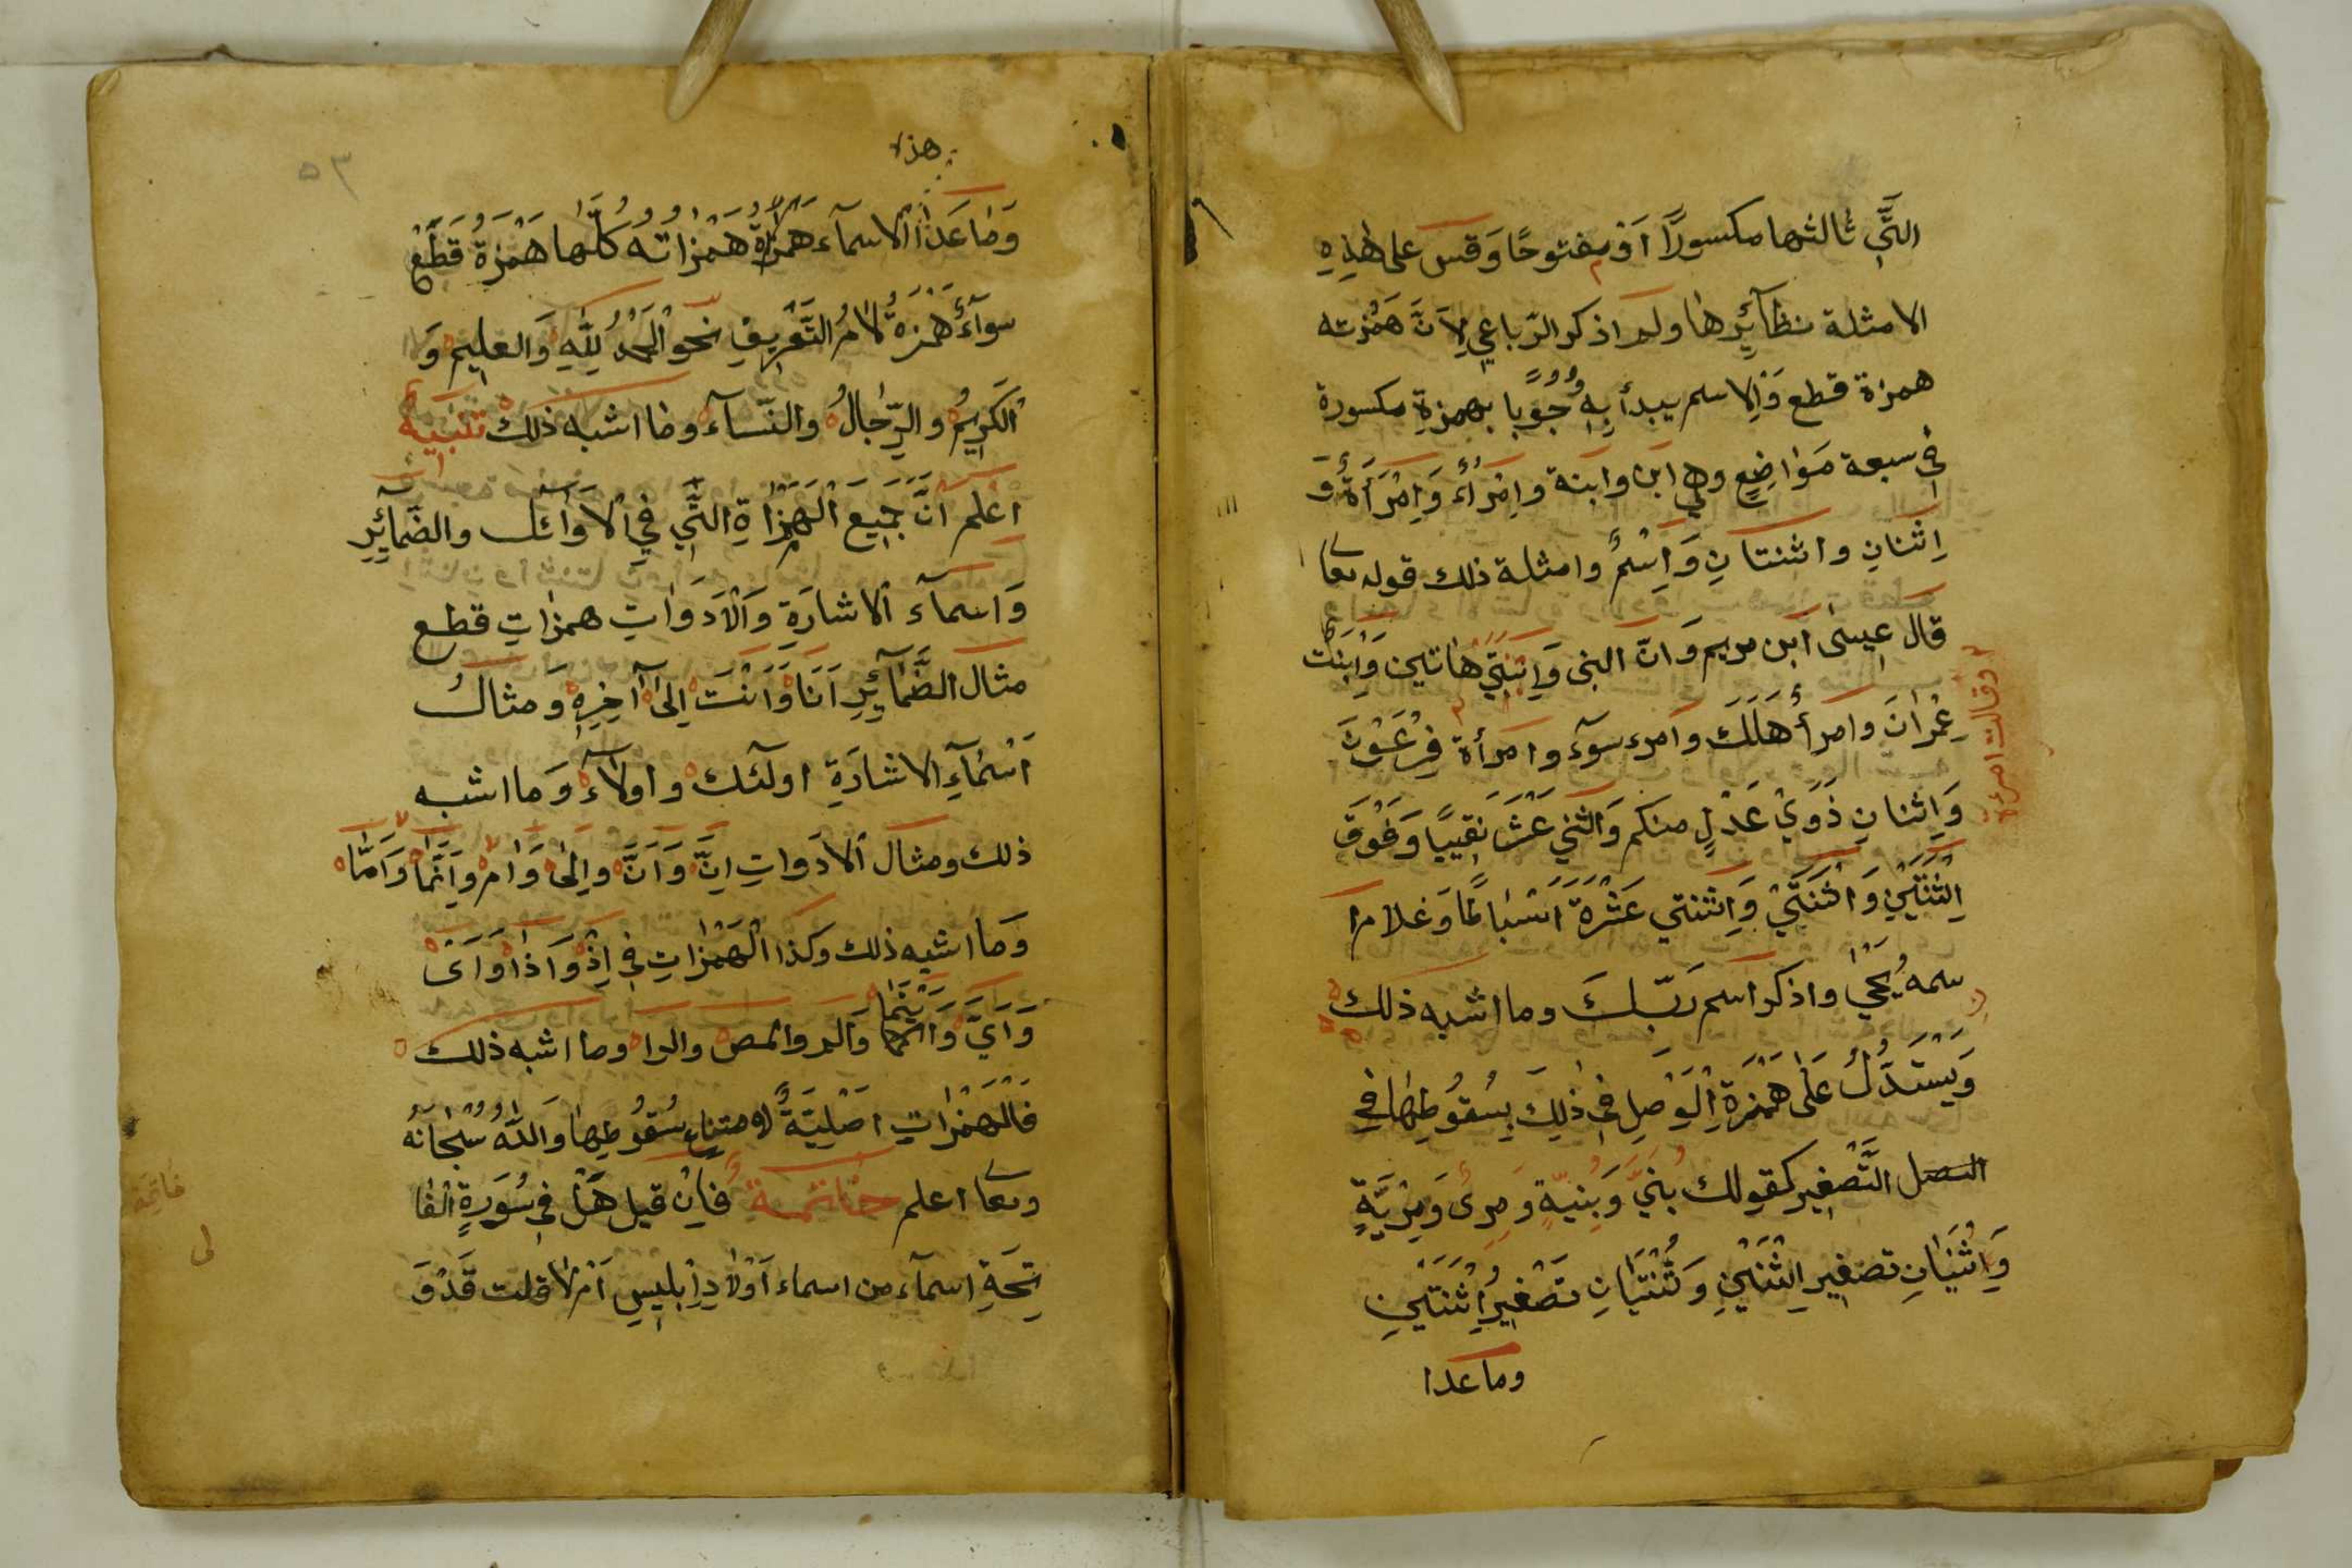 الَّتِي ثالثها مكسورًا اَوْ مفتوحًا وَقس على هٰذِهِ
الامثلة نظآئِرها ولم اذكر الرّباعي لِاَنَّ هَمْزته
همزة قطع وَالِاسم يبدأ بِهِ وُجُوبًا بهمزةِ مكسورة
في سبعة مَوٰاضِعٍ وهي ابن وابنة وامْرُأٌ وَامْرَأَةٌ وَ
اِثنانِ واثنتانِ وَاِسْمٌ وامثلة ذلك قوله تعا
قال عِيسٰى ابن مريم وَانّ ابني وَابنَتَيَّ هٰاتين وَابْنَتَ
عِمْرٰانَ وامرأُ هَلَكَ وامرء سوٓء وامرأة فِرْعَوْنَ
وقالت امرئة
وَاِثنانِ ذَوَيْ عَدْلٍ منكم وَاثْنَيْ عَشَرَ نَقِيبًا وَفَوْقَ
اِثْنَتَيْنِ وَاثْنَتَيْ وَاِثنتي عَشْرَةَ اَسْبَاطًا وَغلام ا
سمهُ يَحْيٰى واذكر اسم رَبّكَ وما اشبه ذلك
وَيَسْتَدَلُّ عَلٰى هَمْزَةِ الْوَصِلِ في ذٰلِكَ بِسُقُوطِهٰا في
التَّصْغِير كقولك بُنَيٌّ وَبُنيّةٍ وَمرئ وَمُرَيَّةٍ
وَاِثْنَيٰانِ تصغير اِثْنَيْنِ وَثُنَتَيٰانِ تَصْغِيرُ اِثْنَتَيْنِ
وما عدا
٥٣
هذه
وَمٰا عَدٰا الاسمآء همزاته كلّها هَمْزَةُ قَطْعٍ
سوآءٌ هَمْزَةُ لٰامُ التَّعْرِيفِ نحو الْحَمْدُ لِلّٰهِ وَالعليم وَ
الْكَرِيمُ والرِّجٰالُ والنّسآء وما اشبه ذلك تَنْبِيهٌ
اعْلم انَّ جَمِيعَ الْهَمْزٰاةِ الَّتِي فِي الْاَوٰائل والضّمآئِرِ
وَاسمآء الاشارَةِ وَالْاَدَوٰاتِ همزٰاتِ قطع
مثال الضَّمٰآئِرِ اَنَا وَاَنْتَ اِلٰى آخِرِهِ وَمثالُ
اَسْمٰآءِ الاشارَةِ اولٓئك واولآء وَما اشبه
ذلك ومثال الادَواتِ اِنَّ وَاَنَّ واِلىٰ وَاَمْ وَاِنَّمٰا وَاَمّٰا
وَما اشبه ذلك وكذا الْهَمْزٰاتِ في اِذْ وَاذٰا وَاَىْ
وَاَيَّ وَاَيْنَمٰا وَالم والمص والرا وما اشبه ذلك
فَالْهَمْزٰاتِ اصْلِيَّةٌ لامتناعِ سُقُوطِهٰا وَاللّٰهُ سُبْحٰانَهُ
وتعا اعلم خٰاتمةٌ فاِنْ قيل هَلْ في سُورَةِ الْفٰا
تِحَةِ اسمآء من اسماء اَوْلٰادِ اِبْلِيسِ اَمْ لٰا قلت قَدْ وَ
خاتمة